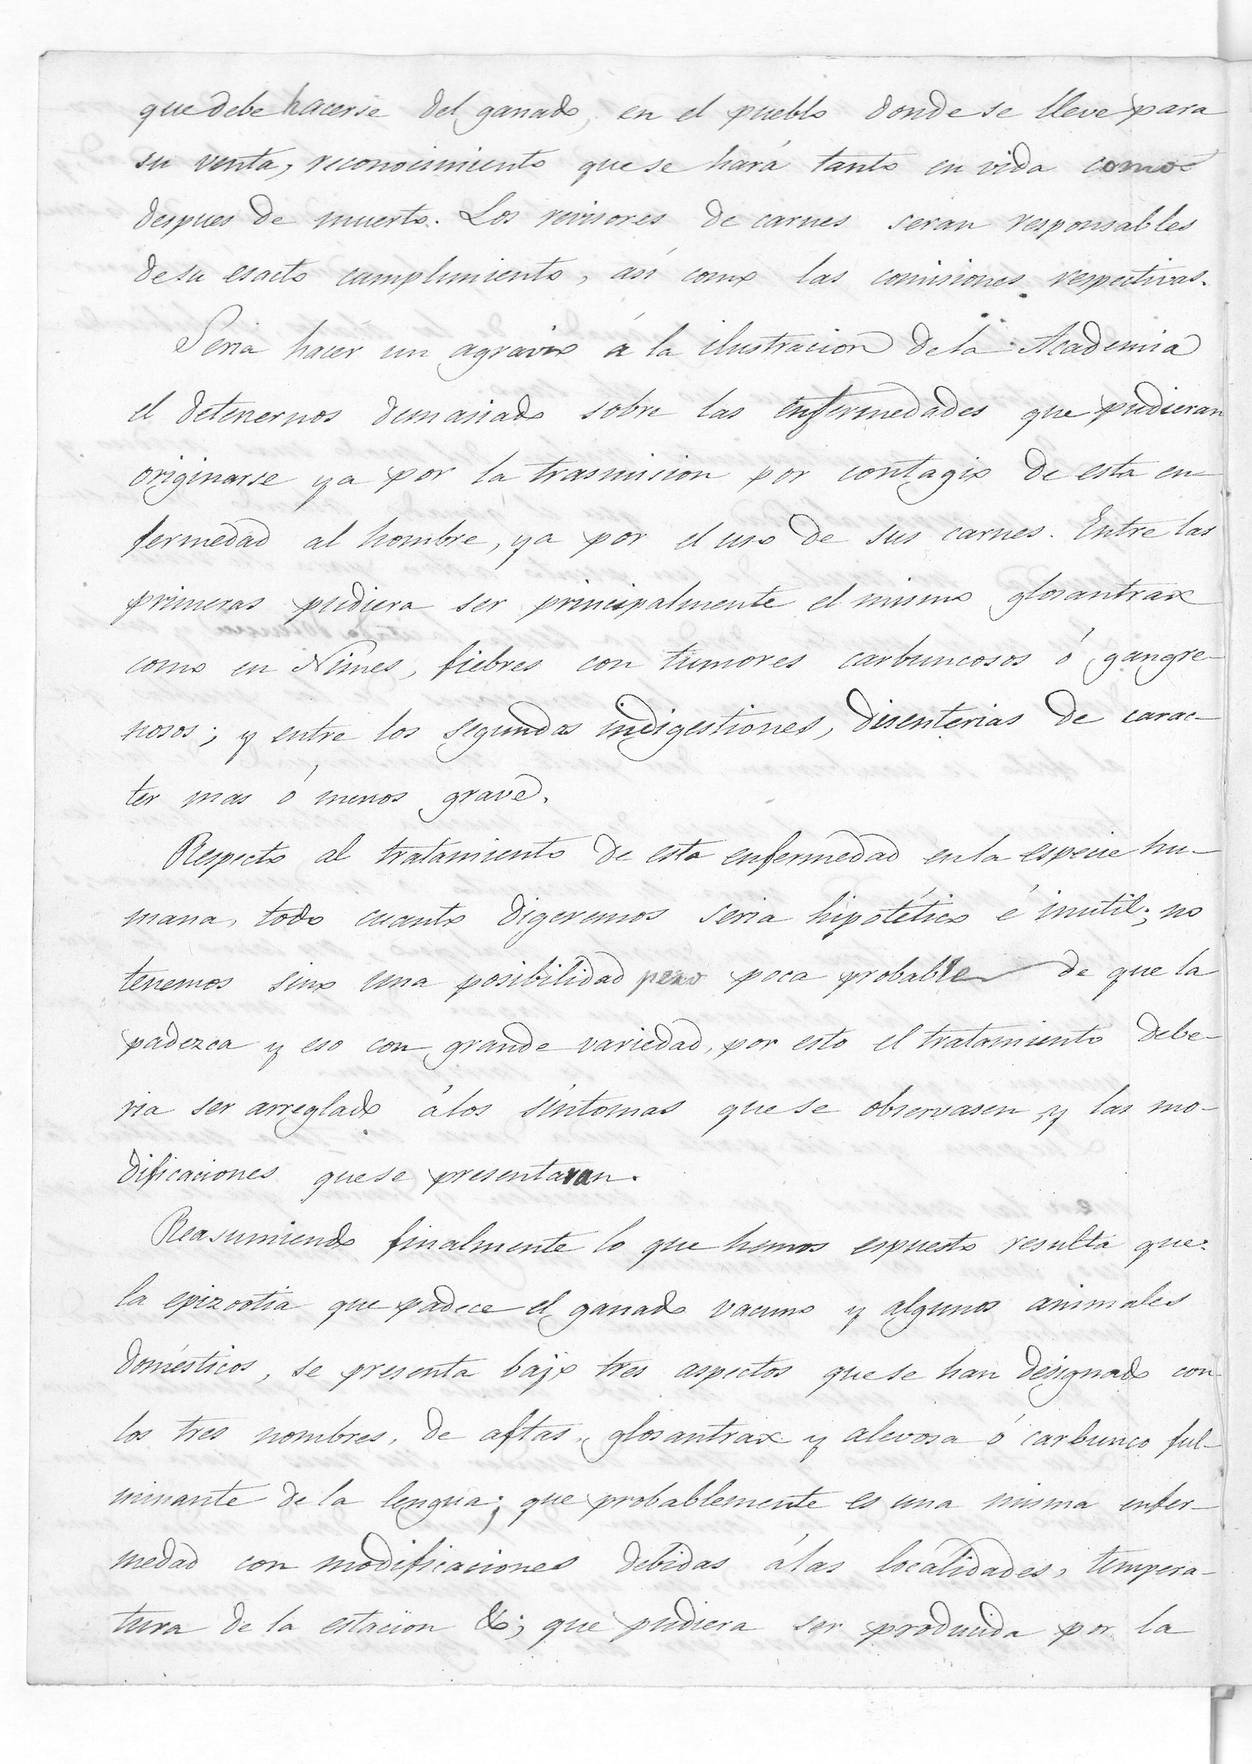 que debe hacerse del ganado, en el pueblo donde se lleve para
su venta, reconocimiento que se hará tanto en vida como
despues de muerto. Los revisores de carnes seran responsables
de su esacto cumplimiento, asi como las comisiones respectivas.
Seria hacer un agravio á la ilustracion de la Academia
el detenernos demasiado sobre las enfermedades que pudieran
originarse ya por la trasmision por contagio de esta en-
fermedad al hombre, ya por el uso de sus carnes. Entre las
primeras pudiera ser principalmente el mismo glosantrax
como en Nimes, fiebres con tumores carbuncosos ó gangre-
nosos; y entre los segundas indigestiones, disenterias de carac-
ter mas ó menos grave.
Respecto al tratamiento de esta enfermedad en la especie hu-
mana, todo cuanto digeremos seria hipotético é inutil; no
tenemos sino una posibilidad pero poca probable de que la
padezca y eso con grande variedad, por esto el tratamiento debe-
ria ser arreglado á los síntomas que se observasen y las mo-
dificaciones que se presentaran.
Reasumiendo finalmente lo que hemos espuesto resulta que:
la epizootia que padece el ganado vacuno y algunos animales
domésticos, se presenta bajo tres aspectos que se han designado con
los tres nombres, de aftas, glosantrax y alevosa ó carbunco ful-
minante de la lengua; que probablemente es una misma enfer-
medad con modificaciones debidas á las localidades, tempera-
tura de la estacion &c; que pudiera ser producida por la